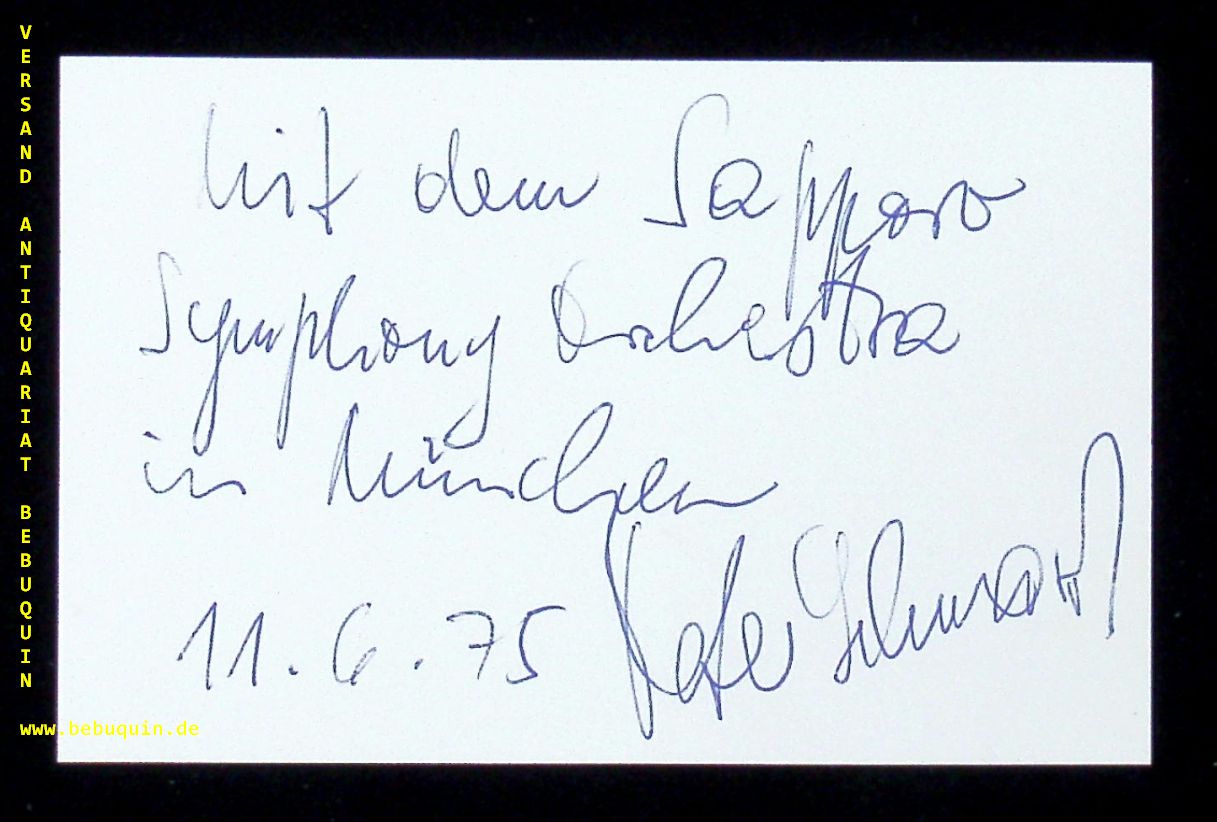 VERSAND ANTIQUARIAT BEBUQUIN
Mit dem Sapporo
Symphony Orchestra
in München
11.6.75 Peter Schwarz
www.bebuquin.de